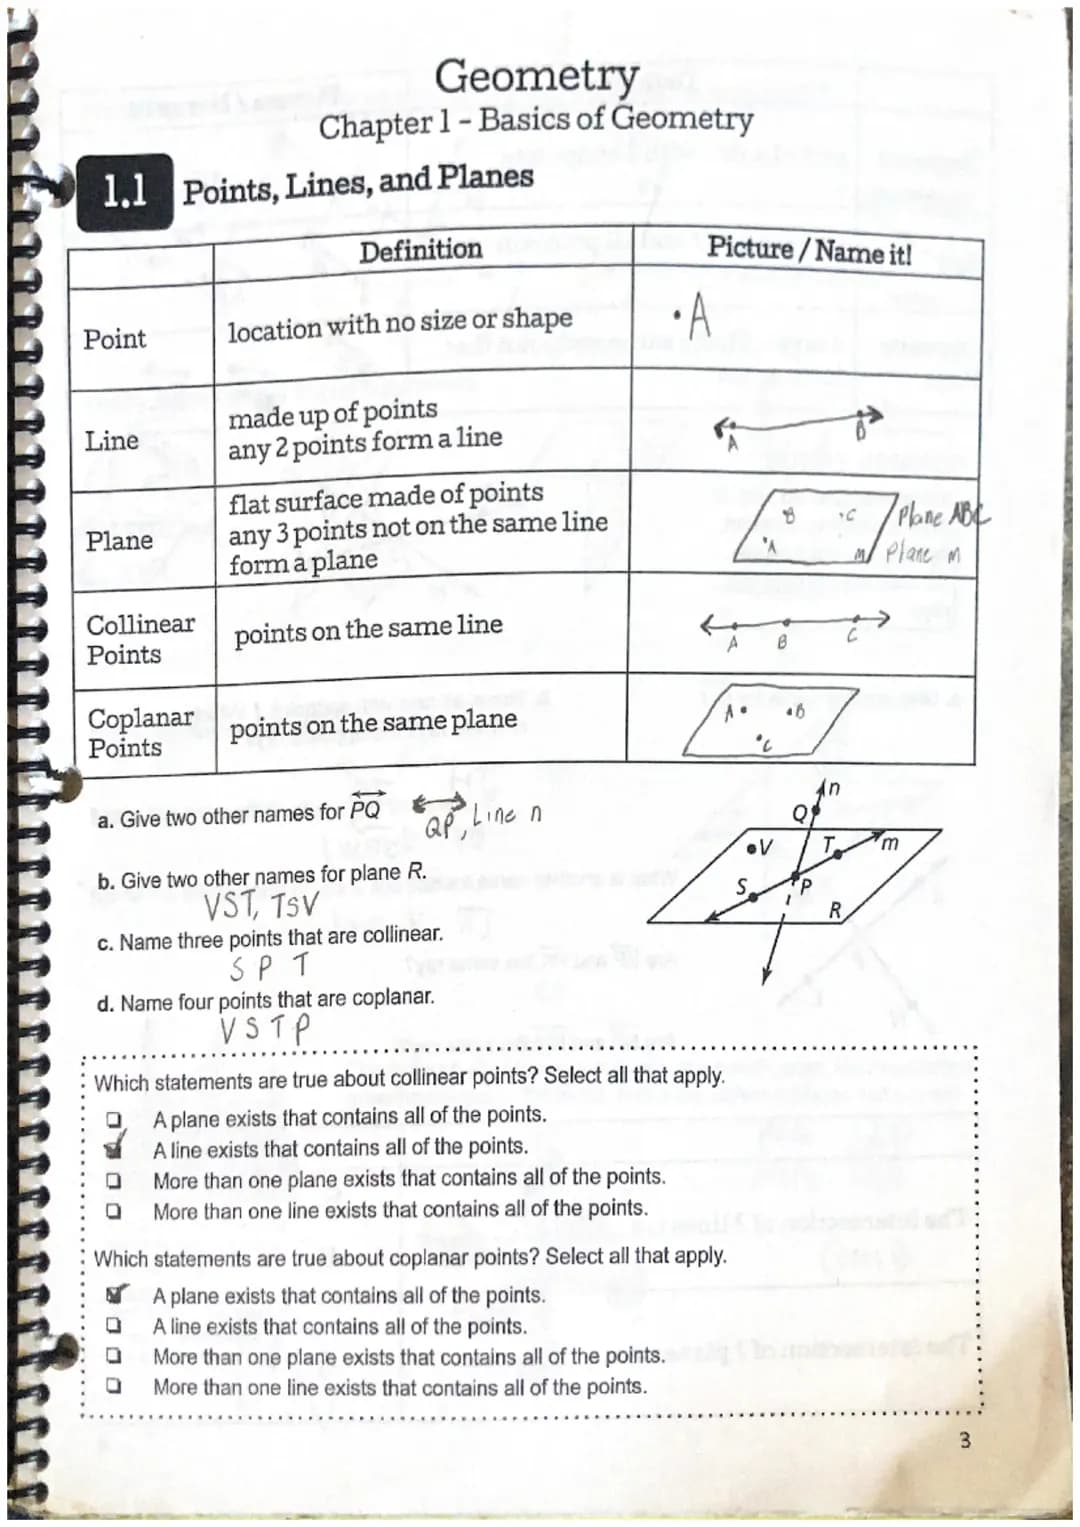 Geometry
Chapter 1 - Basics of Geometry
1.1 Points, Lines, and Planes
Definition Picture / Name it!
Point location with no size or shape • A
Line made up of points
any 2 points form a line
A B
Plane flat surface made of points
any 3 points not on the same line
form a plane
B C Plane ABC
A m Plane m
Collinear
Points
points on the same line
A B C
Coplanar
Points
points on the same plane
A B
C
a. Give two other names for PQ QP, Line n
b. Give two other names for plane R.
VST, TSV
c. Name three points that are collinear.
S P T
d. Name four points that are coplanar.
V S T P
n
Q
V T m
S P
R
Which statements are true about collinear points? Select all that apply.
A plane exists that contains all of the points.
A line exists that contains all of the points.
More than one plane exists that contains all of the points.
More than one line exists that contains all of the points.
Which statements are true about coplanar points? Select all that apply.
A plane exists that contains all of the points.
A line exists that contains all of the points.
More than one plane exists that contains all of the points.
More than one line exists that contains all of the points.
3